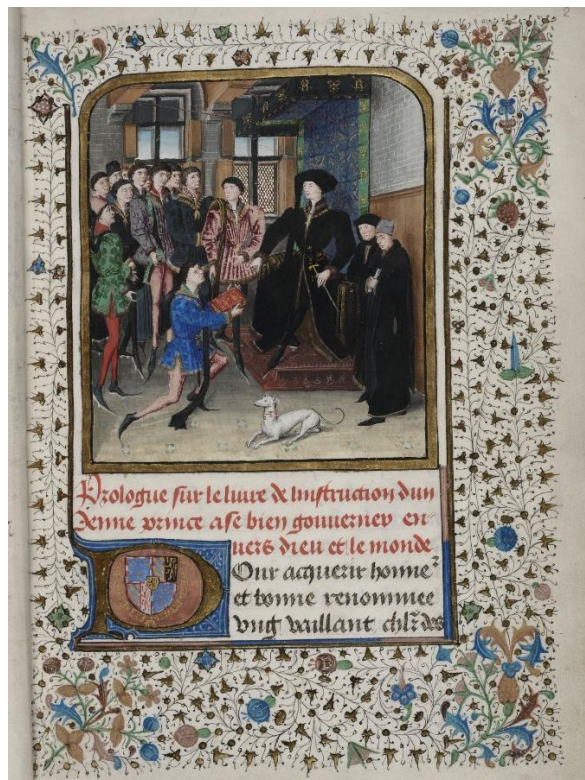 2
Prologue sur le liure de linstruction dun
Jenne prince a se bien gouuerner en
uers dieu et le monde
Pour acquerir honne᷑
et bonne renommee
vng vaillant chl̅r des